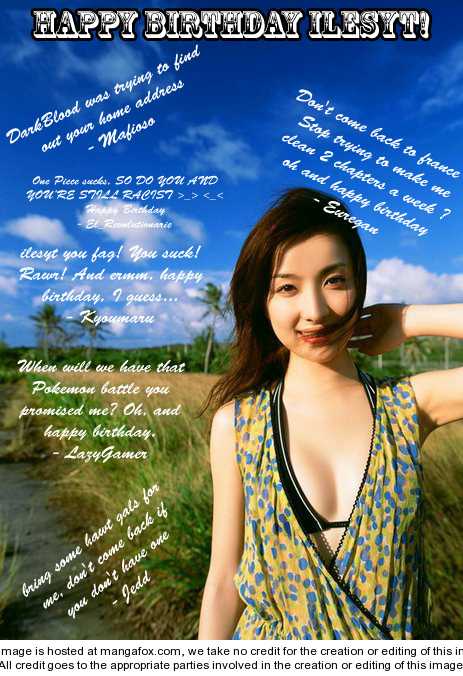 HAPPY BIRTHDAY ILESYT!
DarkBlood was trying to find
out your home address
- Mafioso
Don't come back to france
Stop trying to make me
clean 2 chapters a week ?
oh and happy birthday
- Euregan
One Piece sucks, SO DO YOU AND
YOU'RE STILL RACIST >_> <_<
Happy Birthday
- El_Revolutionarie
ilesyt you fag! You suck!
Rawr! And ermm, happy
birthday, I guess...
- Kyoumaru
When will we have that
Pokemon battle you
promised me? Oh, and
happy birthday.
- LazyGamer
bring some hawt gals for
me, don't come back if
you don't have one
- Jedd
mage is hosted at mangafox.com, we take no credit for the creation or editing of this im
All credit goes to the appropriate parties involved in the creation or editing of this image